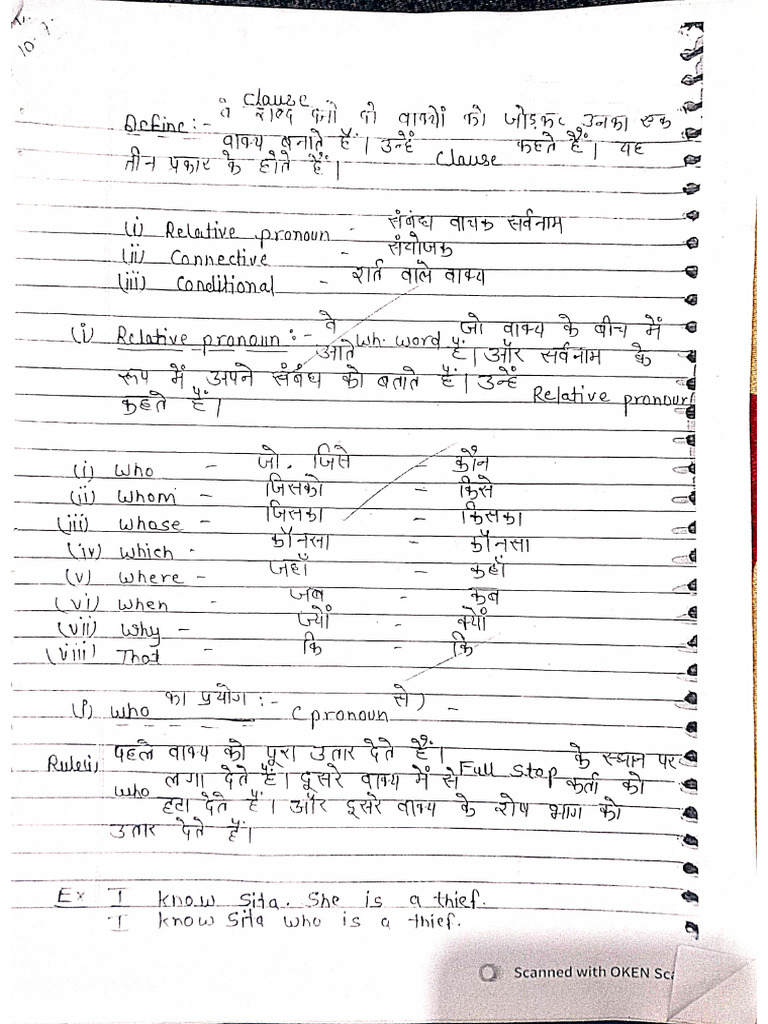 10.7.
Clause
Define:- वे शब्द जो दो वाक्यों को जोड़कर उनका एक
वाक्य बनाते हैं। उन्हें Clause कहते हैं। यह
तीन प्रकार के होते हैं।
(i) Relative pronoun - संबंध वाचक सर्वनाम
(ii) Connective - संयोजक
(iii) Conditional - शर्त वाले वाक्य
(i) Relative pronoun :- वे wh. word जो वाक्य के बीच में
आते हैं। और सर्वनाम के
रूप में अपने संबंध को बताते हैं। उन्हें Relative pronoun
कहते हैं।
(i) who - जो, जिसे - कौन
(ii) whom - जिसको - किसे
(iii) whose - जिसका - किसका
(iv) which - कौनसा - कौनसा
(v) where - जहाँ - कहाँ
(vi) when - जब - कब
(vii) why - ज्यों - क्यों
(viii) That - कि - कि
(1) who का प्रयोग :- (pronoun से) -
Rule:- पहले वाक्य को पूरा उतार देते हैं। Full Stop के स्थान पर
who लगा देते हैं। दूसरे वाक्य में से कर्ता को
हटा देते हैं। और दूसरे वाक्य के शेष भाग को
उतार देते हैं।
Ex I know Sita. She is a thief.
I know Sita who is a thief.
Scanned with OKEN Sca